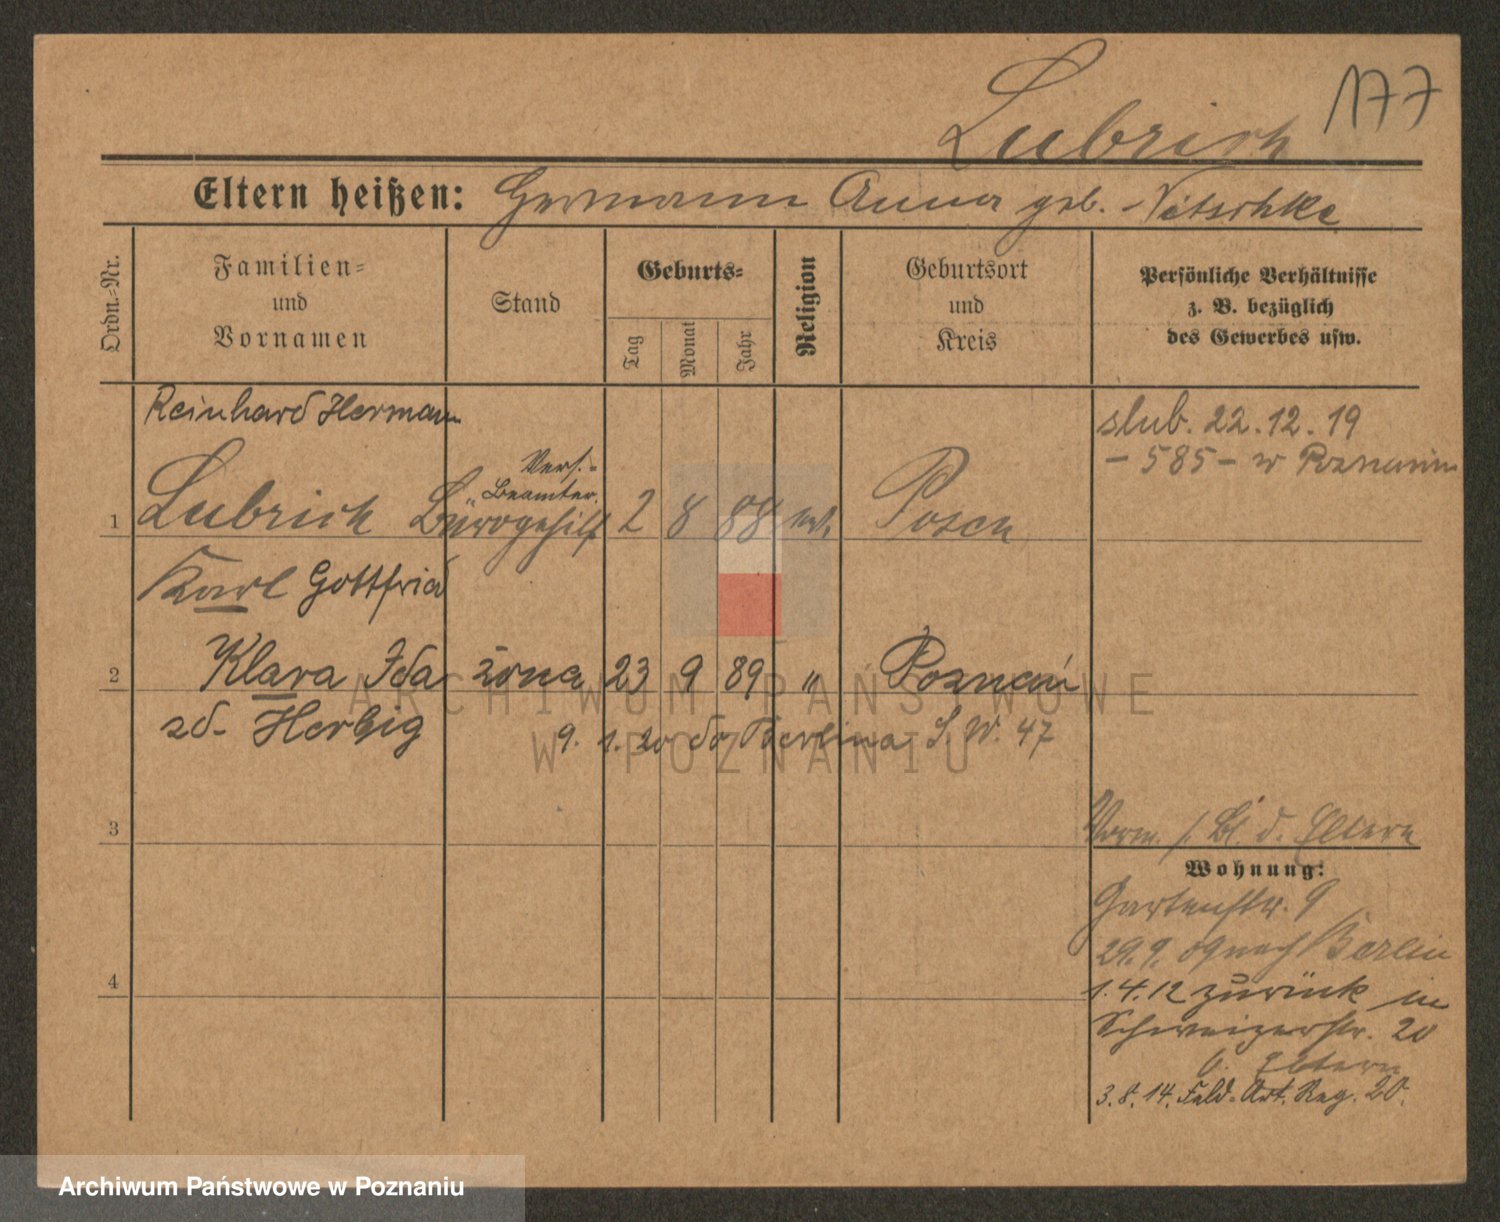 177
Lubrich
Eltern heißen: Hermann Anna geb. Nitschke
Ordn.-Nr.
Familien- und Vornamen
Stand
Geburts-
Tag
Monat
Jahr
Religion
Geburtsort und Kreis
Persönliche Verhältnisse z. B. bezüglich des Gewerbes usw.
Reinhard Hermann
slub. 22.12.19
- 585 - w Poznaniu
Vers.-
Beamter.
1 Lubrich Bürogehilf 2 8 88 Posen
Karl Gottfried
2 Klara Ida żona 23 9 89 " Poznań
zd. Herbig
9. 1. 20 do Berlina S.W. 47
3
Vorm. s. Bl. d. Eltern
Wohnung:
Gartenstr. 9
29.9. 09 nach Berlin
4
1.4.12 zurück in
Schweizerstr. 20
b. Eltern
3.8.14. Feld-Art. Reg. 20.
ARCHIWUM PAŃSTWOWE
W POZNANIU
Archiwum Państwowe w Poznaniu